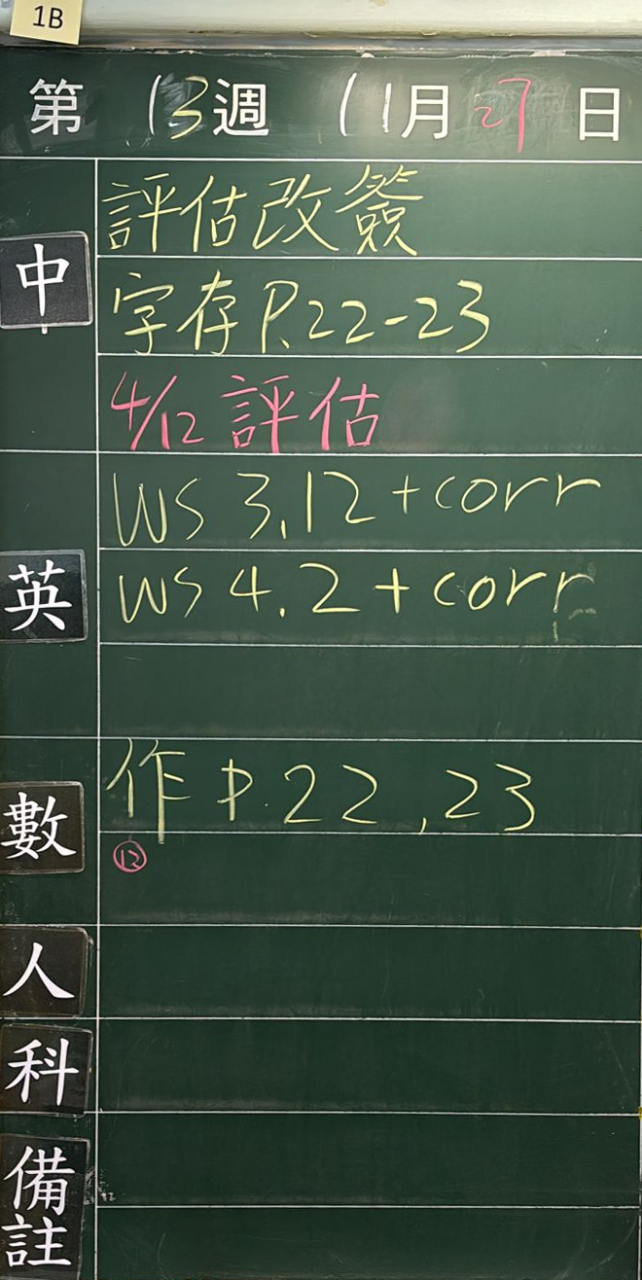 1B
第 13週 11月27日
中
評估改簽
字存P.22-23
4/12 評估
英
WS 3.12+corr
WS 4.2+corr
數
作 P.22,23
⑫
人
科
備註